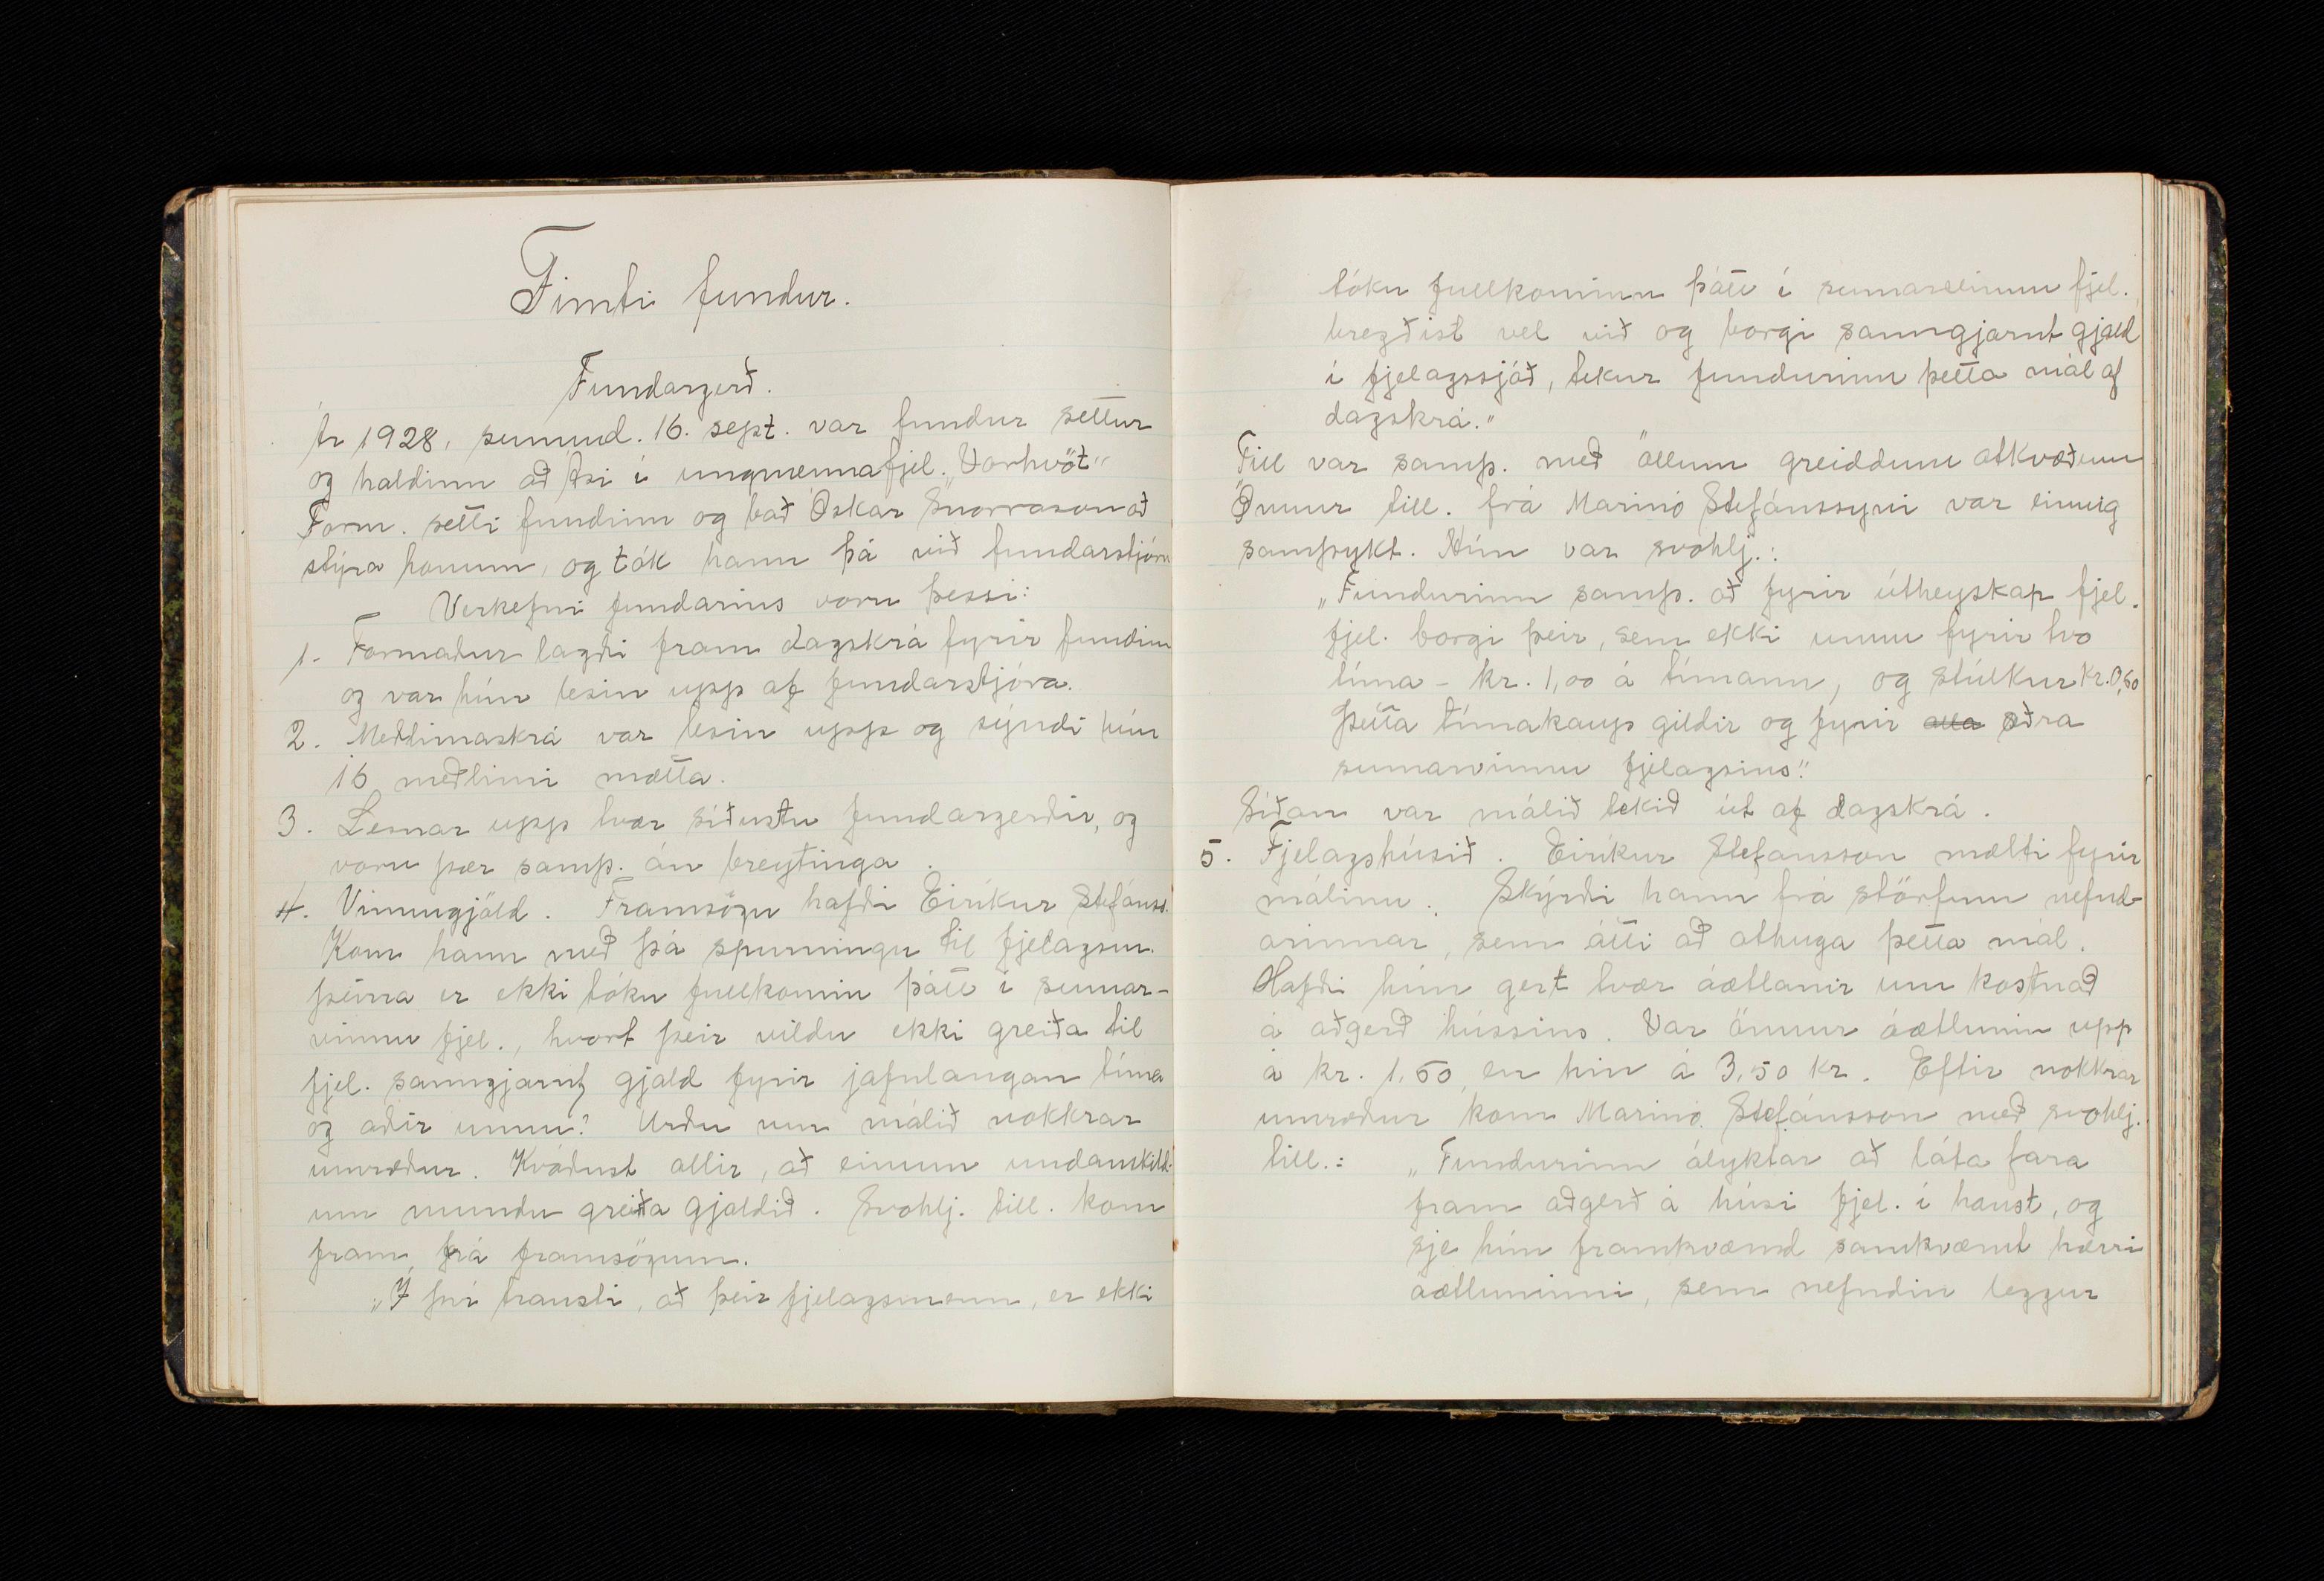 Fimti fundur.
Fundargerð.
Ár 1928, sunnud. 16. sept. var fundur settur
og haldinn að Ási í ungmennafjel. „Vorhvöt"
Form. setti fundinn og bað Óskar Snorrason að
stýra honum, og tók hann þá við fundarstjórn
Verkefni fundarins voru þessi:
1. Formaður lagði fram dagskrá fyrir fundinn
og var hún lesin upp af fundarstjóra.
2. Meðlimaskrá var lesin upp og sýndi hún
16 meðlimi mætta.
3. Lesnar upp tvær síðustu fundargerðir, og
voru þær samþ. án breytinga.
4. Vinnugjöld. Framsögu hafði Eiríkur Stefánss.
Kom hann með þá spurningu til fjelagsm.
þeirra er ekki tóku fullkomin þátt í sumar-
vinnu fjel., hvort þeir vildu ekki greiða til
fjel. sanngjarnt gjald fyrir jafnlangan tíma
og aðir unnu? Urðu um málið nokkrar
umræður. Kváðust allir, að einum undanskild-
um mundu greiða gjaldið. Svohlj. till. kom
fram frá framsögum.
„Í því trausti, að þeir fjelagsmenn, er ekki
tóku fullkominn þátt í sumarvinnu fjel.
bregðist vel við og borgi sanngjarnt gjald
í fjelagssjóð, tekur fundurinn þetta mál af
dagskrá."
Till var samþ. með öllum greiddum atkvæðum
Önnur till. frá Marinó Stefánssyni var einnig
samþykt. Hún var svohlj.:
„Fundurinn samþ. að fyrir útheyskap fjel.
fjel. borgi þeir, sem ekki unnu fyrir hvo
tíma - kr. 1,00 á tímann, og stúlkur kr. 0,60
Þetta tímakaup gildir og fyrir alla aðra
sumarvinnu fjelagsins".
Síðan var málið tekið út af dagskrá.
5. Fjelagshúsið. Eiríkur Stefansson mælti fyrir
málinu. Skýrði hann frá störfum nefnd-
arinnar, sem átti að athuga þetta mál.
Hafði hún gert tvær áætlanir um kostnað
á aðgerð hússins. Var önnur áætlunin upp
á kr. 1,50, en hin á 3,50 kr. Eftir nokkrar
umræður kom Marinó Stefánsson með svohlj.
till.: „Fundurinn ályktar að láta fara
fram aðgerð á húsi fjel. í haust, og
sje hún framkvæmd samkvæmt hærri
áætluninni, sem nefndin leggur